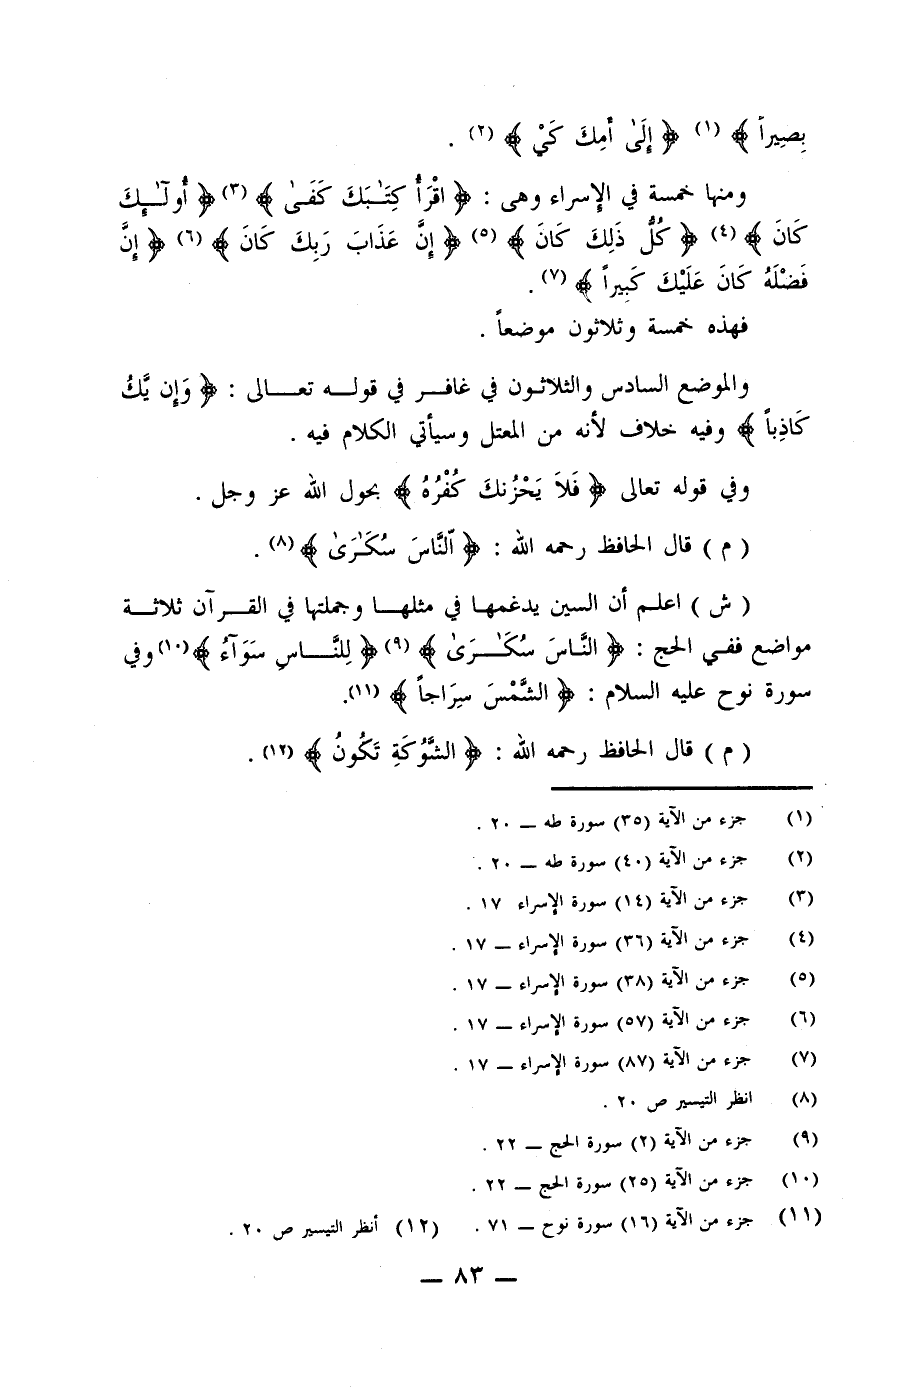 بِصِيراً ﴾ (١) ﴿ إِلَىٰ أمِكَ كَيْ ﴾ (٢) .
ومنها خمسة في الإسراء وهى : ﴿ اقْرَأْ كِتَـٰبَكَ كَفَىٰ ﴾ (٣) ﴿ أُولَـٰٓـئِكَ
كَانَ ﴾ (٤) ﴿ كُلُّ ذَلِكَ كَانَ ﴾ (٥) ﴿ إِنَّ عَذَابَ رَبِكَ كَانَ ﴾ (٦) ﴿ إِنَّ
فَضْلَهُ كَانَ عَلَيْكَ كَبِيراً ﴾ (٧) .
فهذه خمسة وثلاثون موضعاً .
والموضع السادس والثلاثون في غافـر في قولـه تعـالى : ﴿ وَإِن يَّكُ
كَاذِباً ﴾ وفيه خلاف لأنه من المعتل وسيأتي الكلام فيه .
وفي قوله تعالى ﴿ فَلاَ يَحْزُنكَ كُفْرُهُ ﴾ بحول الله عز وجل .
( م ) قال الحافظ رحمه الله : ﴿ النَّاسَ سُكَـٰرَىٰ ﴾ (٨) .
( ش ) اعلـم أن السين يدغمهـا في مثلهـا وجملتها في القـرآن ثلاثـة
مواضع ففـي الحج : ﴿ النَّـاسَ سُكَـٰـرَىٰ ﴾ (٩) ﴿ لِلنَّـاسِ سَوَآءُ ﴾(١٠) وفي
سورة نوح عليه السلام : ﴿ الشَّمْسَ سِرَاجاً ﴾ (١١).
( م ) قال الحافظ رحمه الله : ﴿ الشَّوْكَةِ تَكُونُ ﴾ (١٢) .
(١) جزء من الآية (٣٥) سورة طه ــ ٢٠ .
(٢) جزء من الآية (٤٠) سورة طه ــ ٢٠ .
(٣) جزء من الآية (١٤) سورة الإسراء ١٧ .
(٤) جزء من الآية (٣٦) سورة الإسراء ــ ١٧ .
(٥) جزء من الآية (٣٨) سورة الإسراء ــ ١٧ .
(٦) جزء من الآية (٥٧) سورة الإسراء ــ ١٧ .
(٧) جزء من الآية (٨٧) سورة الإسراء ــ ١٧ .
(٨) انظر التيسير ص ٢٠ .
(٩) جزء من الآية (٢) سورة الحج ــ ٢٢ .
(١٠) جزء من الآية (٢٥) سورة الحج ــ ٢٢ .
(١١) جزء من الآية (١٦) سورة نوح ــ ٧١ . (١٢) أنظر التيسير ص ٢٠ .
ــ ٨٣ ــ